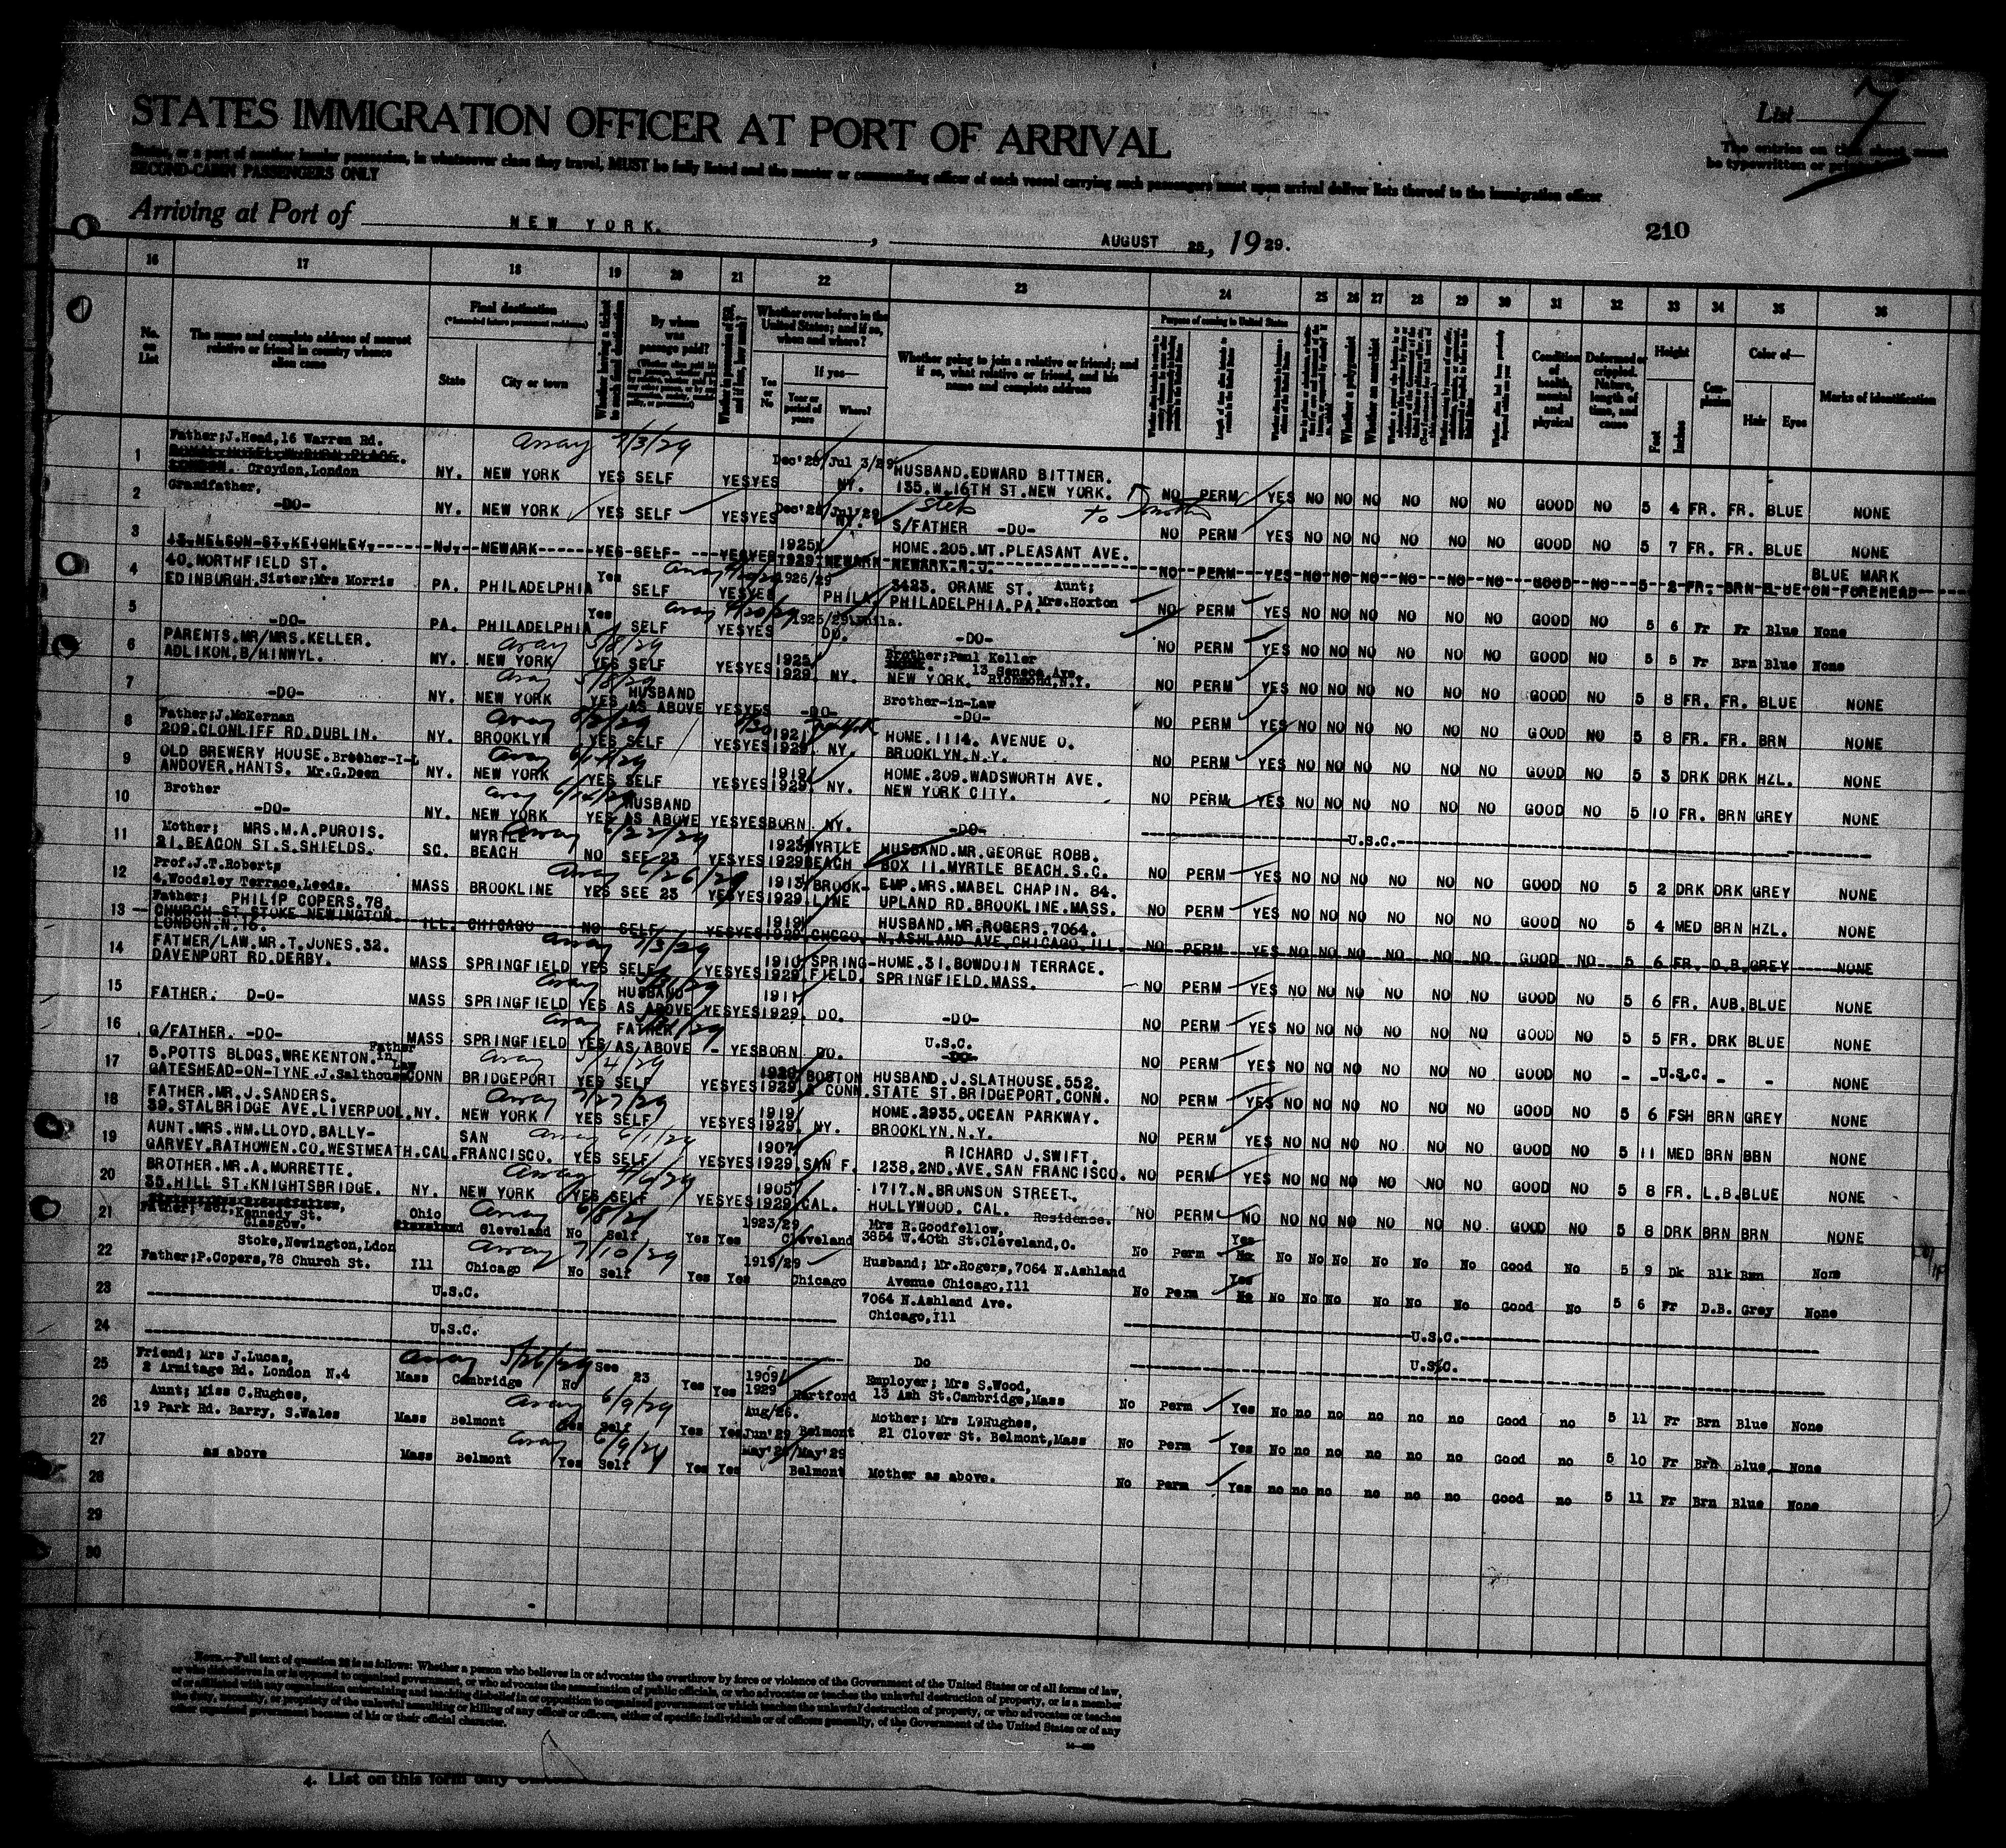 STATES IMMIGRATION OFFICER AT PORT OF ARRIVAL
List 7
The entries on this sheet must
be typewritten or
States, or a part of another insular possession, in whatsoever class they travel, MUST be fully listed and the master or commanding officer of each vessel carrying such passengers must upon arrival deliver lists thereof to the immigration officer
SECOND-CABIN PASSENGERS ONLY
Arriving at Port of NEW YORK. , AUGUST 25, 1929.
210
16 17 18 19 20 21 22 23 24 25 26 27 28 29 30 31 32 33 34 35 36
No. on List
The name and complete address of nearest relative or friend in country whence alien came
Final destination
State
City or town
By whom was passage paid?
Whether ever before in the United States; and if so, when and where?
Yes or No
If yes—
Year or period of years
Where?
Whether going to join a relative or friend; and if so, what relative or friend, and his name and complete address
Purpose of coming to United States
Whether a polygamist
Whether an anarchist
Condition of health, mental and physical
Deformed or crippled. Nature, length of time, and cause
Height
Feet
Inches
Complexion
Color of—
Hair
Eyes
Marks of identification
1 Father;J.Head,16 Warren Rd.
LONDON. Croydon,London NY. NEW YORK YES SELF YES YES Dec'28 Jul 3/29 NY. HUSBAND.EDWARD BITTNER.
135.W.16TH ST.NEW YORK. NO PERM YES NO NO NO NO NO NO GOOD NO 5 4 FR. FR. BLUE NONE
2 Grandfather,
-DO- NY. NEW YORK YES SELF YES YES Dec'28 Jul/29 NY. S/FATHER -DO- NO PERM YES NO NO NO NO NO NO GOOD NO 5 7 FR. FR. BLUE NONE
3 13.NELSON ST.KEIGHLEY. NJ. NEWARK YES SELF YES YES 1925 1929 NEWARK HOME.205.MT.PLEASANT AVE.
NEWARK.N.J. NO PERM YES NO NO NO NO NO NO GOOD NO 5 2 FR. BRN BLUE BLUE MARK ON FOREHEAD
4 40.NORTHFIELD ST.
EDINBURGH.Sister;Mrs Morris PA. PHILADELPHIA Yes SELF YES YES 1926/29 PHILA. 3423. ORAME ST. Aunt;
PHILADELPHIA.PA. Mrs.Hoxton NO PERM YES NO NO NO NO NO NO GOOD NO 5 6 Fr Fr Blue None
5 -DO- PA. PHILADELPHIA Yes SELF YES YES 1925/29 Phila. DO. -DO- NO PERM YES NO NO NO NO NO NO GOOD NO 5 5 Fr Brn Blue None
6 PARENTS.MR/MRS.KELLER.
ADLIKON.B/HINWYL. NY. NEW YORK 5/8/29 YES SELF YES YES 1925 1929. NY. Brother;Paul Keller
13 Seneca Ave.
NEW YORK. Richmond,N.Y. NO PERM YES NO NO NO NO NO NO GOOD NO 5 8 FR. FR. BLUE NONE
7 -DO- NY. NEW YORK 5/8/29 YES HUSBAND AS ABOVE YES YES -DO- Brother-in-Law
-DO- NO PERM YES NO NO NO NO NO NO GOOD NO 5 8 FR. FR. BRN NONE
8 Father;J.McKernan
209.CLONLIFF RD.DUBLIN. NY. BROOKLYN YES SELF YES YES 1921 1929. NY. HOME.1114. AVENUE O.
BROOKLYN.N.Y. NO PERM YES NO NO NO NO NO NO GOOD NO 5 3 DRK DRK HZL. NONE
9 OLD BREWERY HOUSE.Brother-I-L
ANDOVER.HANTS. Mr.G.Deen NY. NEW YORK YES SELF YES YES 1919 1929. NY. HOME.209.WADSWORTH AVE.
NEW YORK CITY. NO PERM YES NO NO NO NO NO NO GOOD NO 5 10 FR. BRN GREY NONE
10 Brother
-DO- NY. NEW YORK 6/14/29 YES HUSBAND AS ABOVE YES YES BORN NY. -DO- U.S.C.
11 Mother; MRS.M.A.PURDIS.
21.BEACON ST.S.SHIELDS. SC. MYRTLE BEACH 6/22/29 NO SEE 23 YES YES 1923 1929 MYRTLE BEACH HUSBAND.MR.GEORGE ROBB.
BOX 11.MYRTLE BEACH.S.C. NO PERM YES NO NO NO NO NO NO GOOD NO 5 2 DRK DRK GREY NONE
12 Prof.J.T.Roberts
4.Woodsley Terrace,Leeds. MASS BROOKLINE 6/26/29 YES SEE 23 YES YES 1913 1929. BROOK-LINE EMP.MRS.MABEL CHAPIN. 84.
UPLAND RD.BROOKLINE.MASS. NO PERM YES NO NO NO NO NO NO GOOD NO 5 4 MED BRN HZL. NONE
13 Father; PHILIP COPERS.78.
CHURCH ST.STOKE NEWINGTON.
LONDON.N.16. ILL. CHICAGO NO SELF YES YES 1919 1929. CHCGO. HUSBAND.MR.ROGERS.7064.
N.ASHLAND AVE.CHICAGO.ILL. NO PERM YES NO NO NO NO NO NO GOOD NO 5 6 FR. D.B. GREY NONE
14 FATHER/LAW.MR.T.JONES.32.
DAVENPORT RD.DERBY. MASS SPRINGFIELD 7/3/29 YES SELF YES YES 1910 1929. SPRING-FIELD. HOME.31.BOWDOIN TERRACE.
SPRINGFIELD.MASS. NO PERM YES NO NO NO NO NO NO GOOD NO 5 6 FR. AUB. BLUE NONE
15 FATHER: D-O- MASS SPRINGFIELD YES HUSBAND AS ABOVE YES YES 1911 1929. DO. -DO- NO PERM YES NO NO NO NO NO NO GOOD NO 5 5 FR. DRK BLUE NONE
16 G/FATHER. -DO- MASS SPRINGFIELD YES FATHER AS ABOVE - YES BORN DO. U.S.C.
-DO- NO PERM YES NO NO NO NO NO NO GOOD NO - - U.S.C. - - NONE
17 5.POTTS BLDGS.WREKENTON. Father in Law
GATESHEAD-ON-TYNE.J.Salthouse CONN BRIDGEPORT 5/4/29 YES SELF YES YES 1929. BOSTON & CONN. HUSBAND.J.SLATHOUSE.552.
STATE ST.BRIDGEPORT.CONN. NO PERM YES NO NO NO NO NO NO GOOD NO 5 6 FSH BRN GREY NONE
18 FATHER.MR.J.SANDERS.
39.STALBRIDGE AVE.LIVERPOOL. NY. NEW YORK 7/27/29 YES SELF YES YES 1919 1929. NY. HOME.2935.OCEAN PARKWAY.
BROOKLYN.N.Y. NO PERM YES NO NO NO NO NO NO GOOD NO 5 11 MED BRN BBN NONE
19 AUNT.MRS.WM.LLOYD.BALLY-
GARVEY.RATHOWEN.CO.WESTMEATH. CAL. SAN FRANCISCO. 6/1/29 YES SELF YES YES 1907 1929 SAN F. RICHARD J.SWIFT.
1238.2ND.AVE.SAN FRANCISCO. NO PERM YES NO NO NO NO NO NO GOOD NO 5 8 FR. L.B. BLUE NONE
20 BROTHER.MR.A.MORRETTE.
35.HILL ST.KNIGHTSBRIDGE. NY. NEW YORK YES SELF YES YES 1905 1929 CAL. 1717.N.BRONSON STREET.
HOLLYWOOD. CAL. Residence. NO PERM NO NO NO NO NO NO NO GOOD NO 5 8 DRK BRN BRN NONE
21 Father; 261,Kennedy St.
Glasgow. Ohio Cleveland No Self Yes Yes 1923/29 Cleveland Mrs R.Goodfellow,
3854 W.40th St.Cleveland,O. No Perm Yes No No No No No No Good No 5 9 Dk Blk Brn None
22 Stoke,Newington,Ldon
Father;P.Copers,78 Church St. Ill Chicago 7/10/29 No Self Yes Yes 1919/29 Chicago Husband; Mr.Rogers,7064 N.Ashland
Avenue Chicago,Ill No Perm Yes No No No No No No Good No 5 6 Fr D.B. Grey None
23 U.S.C. 7064 N.Ashland Ave.
Chicago,Ill U.S.C.
24 U.S.C. Do U.S.C.
25 Friend; Mrs J.Lucas,
2 Armitage Rd. London N.4 Mass Cambridge 5/26/29 No See 23 Yes Yes 1909 1929 Hartford Employer; Mrs S.Wood,
13 Ash St.Cambridge,Mass No Perm Yes No no no no no no Good no 5 11 Fr Brn Blue None
26 Aunt; Miss C.Hughes,
19 Park Rd. Barry, S.Wales Mass Belmont 6/9/29 Yes Self Yes Yes Aug/26. Jun'29 Belmont Mother; Mrs L.Hughes,
21 Clover St. Belmont,Mass No Perm Yes No no no no no no Good no 5 10 Fr Brn Blue None
27 as above Mass Belmont 6/9/29 Yes Self Yes Yes May'29 Belmont Mother as above. No Perm Yes no no no no no no Good no 5 11 Fr Brn Blue None
28
29
30
NOTE.—Full text of question 28 is as follows: Whether a person who believes in or advocates the overthrow by force or violence of the Government of the United States or of all forms of law,
or who disbelieves in or is opposed to organized government, or who advocates the assassination of public officials, or who advocates or teaches the unlawful destruction of property, or is a member
of or affiliated with any organization entertaining and teaching disbelief in or opposition to organized government or which teaches the unlawful destruction of property, or who advocates or teaches
the duty, necessity, or propriety of the unlawful assaulting or killing of any officer or officers, either of specific individuals or of officers generally, of the Government of the United States or of any
other organized government because of his or their official character.
4. List on this form only